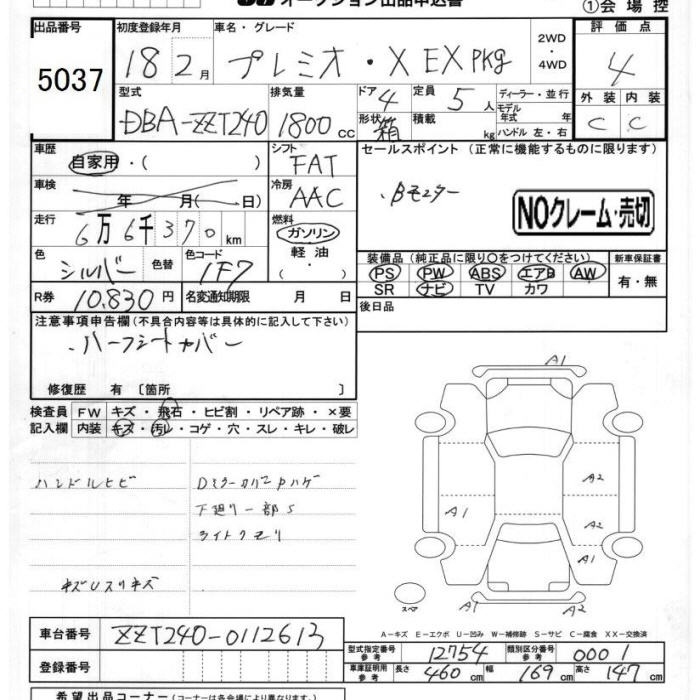 オークション出品申込書
①会場控
出品番号 初度登録年月 車名・グレード 2WD・4WD 評価点
5037 18 2月 プレミオ・X EX Pkg 4
型式 排気量 ドア 4 定員 5人 ディーラー・並行 外装 内装
DBA-ZZT240 1800cc 形状 箱 積載 kg モデル年式 年 ハンドル 左・右 C C
車歴 自家用・( ) シフト FAT セールスポイント (正常に機能するものに限ります)
車検 年 月( 日) 冷房 AAC
.Bモニター
NOクレーム・売切
走行 6万6千370km 燃料 ガソリン 軽油・
色 シルバー 色替 色コード 1F7
装備品(純正品に限り○をつけてください) 新車保証書
PS PW ABS エアB AW 有・無
SR ナビ TV カワ
R券 10.830円 名変通知期限 月 日 後日品
注意事項申告欄(不具合内容等は具体的に記入して下さい)
.ハーフシートカバー
修復歴 有〔箇所 〕
検査員 FW キズ・飛石・ヒビ割・リペア跡・×要
記入欄 内装 キズ・汚レ・コゲ・穴・スレ・キレ・破レ
ハンドルヒビ
下廻り一部S
ライトクモリ
A1
A2
A1
A2
A1
スペア
A1 A2
A-キズ E-エクボ U-凹み W-補修跡 S-サビ C-腐食 XX-交換済
車台番号 ZZT240-0112613
型式指定番号 参考 12754 類別区分番号 参考 0001
登録番号
車庫証明用 参考 長さ 460cm 幅 169cm 高さ 147cm
希望出品コーナー(コーナーは各会場により異なります。)